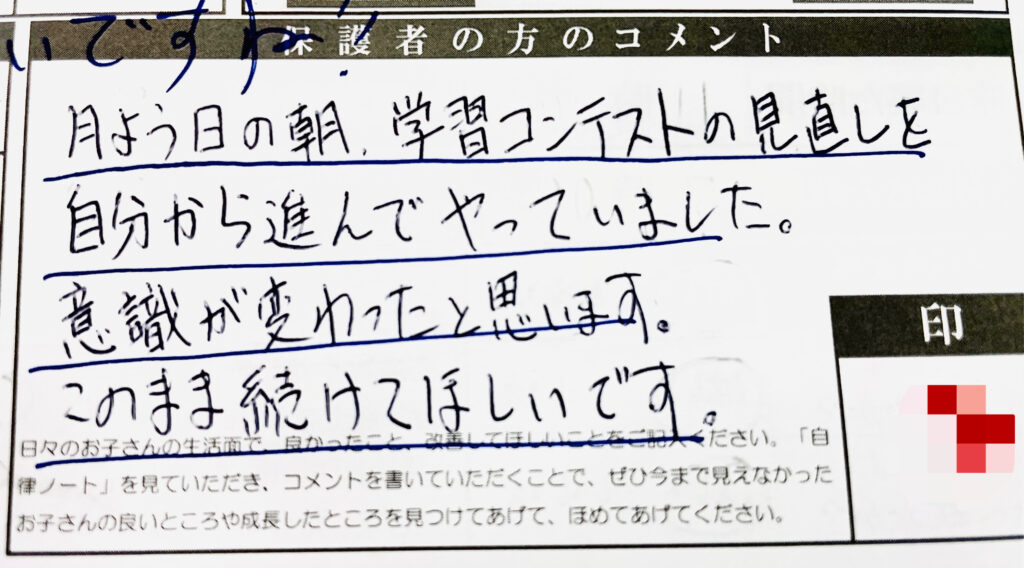 いですね!
保護者の方のコメント
月よう日の朝、学習コンテストの見直しを
自分から進んでやっていました。
意識が変わったと思います。
このまま続けてほしいです。
印
日々のお子さんの生活面で、良かったこと、改善してほしいことをご記入ください。「自
律ノート」を見ていただき、コメントを書いていただくことで、ぜひ今まで見えなかった
お子さんの良いところや成長したところを見つけてあげて、ほめてあげてください。